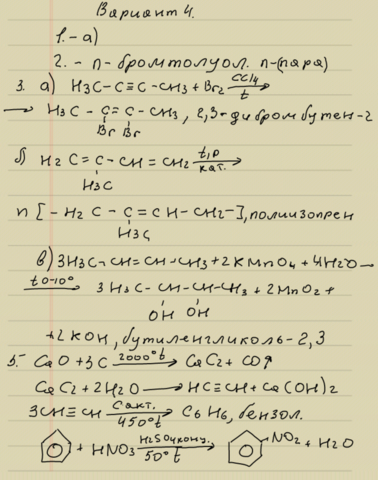 Вариант 4.
1. - а)
2. - п - бромтолуол. п-(пара)
3. а) H3C - C≡C - CH3 + Br2 CCl4 t →
→ H3C - C = C - CH3, 2,3-дибромбутен-2
Br Br
б) H2C = C - CH = CH2 t,p кат. →
H3C
n [- H2C - C = CH - CH2 -], полиизопрен
H3C
в) 3H3C - CH = CH - CH3 + 2KMnO4 + 4H2O —
t 0-10° → 3H3C - CH - CH - CH3 + 2MnO2 +
OH OH
+ 2KOH, бутиленгликоль - 2,3
5. CaO + 3C 2000°t → CaC2 + CO↑
CaC2 + 2H2O → HC≡CH + Ca(OH)2
3CH≡CH Cакт. 450°t → C6H6, бензол.
+ HNO3 H2SO4конц. 50°t → NO2 + H2O